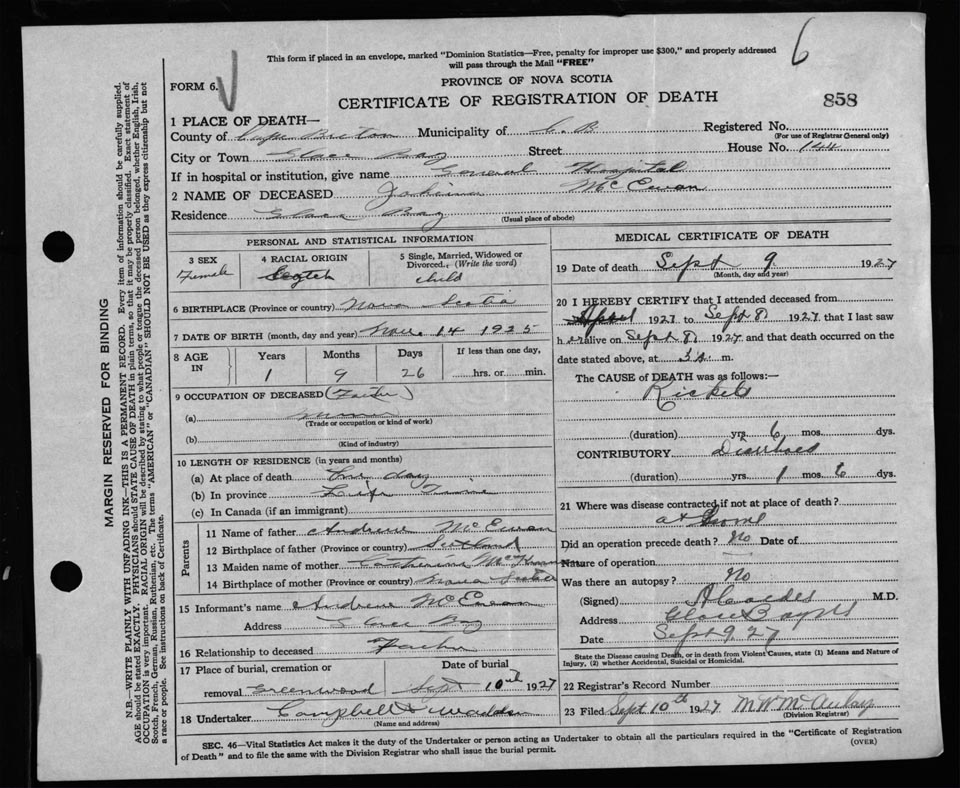 6
This form if placed in an envelope, marked "Dominion Statistics—Free, penalty for improper use $300," and properly addressed
will pass through the Mail "FREE"
FORM 6.
PROVINCE OF NOVA SCOTIA
CERTIFICATE OF REGISTRATION OF DEATH
858
1 PLACE OF DEATH—
County of Cape Breton Municipality of C. B Registered No.
(For use of Registrar General only)
City or Town Glace Bay Street House No. 144
If in hospital or institution, give name General Hospital
2 NAME OF DECEASED McEwan
Residence Glace Bay
(Usual place of abode)
PERSONAL AND STATISTICAL INFORMATION
3 SEX Female
4 RACIAL ORIGIN Scotch
5 Single, Married, Widowed or Divorced. (Write the word) child
6 BIRTHPLACE (Province or country) Nova Scotia
7 DATE OF BIRTH (month, day and year) 14 1925
8 AGE IN Years Months Days If less than one day,
1 9 26 hrs. or min.
9 OCCUPATION OF DECEASED (Father)
(a)
(Trade or occupation or kind of work)
(b)
(Kind of industry)
10 LENGTH OF RESIDENCE (in years and months)
(a) At place of death One day
(b) In province Life Time
(c) In Canada (if an immigrant)
Parents
11 Name of father Andrew McEwan
12 Birthplace of father (Province or country) Scotland
13 Maiden name of mother Catherine
14 Birthplace of mother (Province or country) Nova Scotia
15 Informant's name Andrew McEwan
Address Glace Bay
16 Relationship to deceased Father
17 Place of burial, cremation or removal Greenwood
Date of burial Sept 10th 1927
18 Undertaker Campbell & Wadden
(Name and address)
MEDICAL CERTIFICATE OF DEATH
19 Date of death Sept 9 1927
(Month, day and year)
20 I HEREBY CERTIFY that I attended deceased from
April 1927 to Sept 8 1927 that I last saw
h er alive on Sept 8 1927 and that death occurred on the
date stated above, at 3 a. m.
The CAUSE of DEATH was as follows:—
Rickets
(duration) yrs. 6 mos. dys.
CONTRIBUTORY Diarrhoea
(duration) yrs. 1 mos. 6 dys.
21 Where was disease contracted if not at place of death?
at home
Did an operation precede death? No Date of
Nature of operation
Was there an autopsy? No
(Signed) M.D.
Address Glace Bay NS
Date Sept 9 27
State the Disease causing Death, or in death from Violent Causes, state (1) Means and Nature of
Injury, (2) whether Accidental, Suicidal or Homicidal.
22 Registrar's Record Number
23 Filed Sept 10th 1927 M W McAulay
(Division Registrar)
SEC. 46—Vital Statistics Act makes it the duty of the Undertaker or person acting as Undertaker to obtain all the particulars required in the "Certificate of Registration
of Death" and to file the same with the Division Registrar who shall issue the burial permit.
(OVER)
MARGIN RESERVED FOR BINDING
N.B.—WRITE PLAINLY WITH UNFADING INK—THIS IS A PERMANENT RECORD. Every item of information should be carefully supplied.
AGE should be stated EXACTLY. PHYSICIANS should STATE CAUSE OF DEATH in plain terms, so that it may be properly classified. Exact statement of
OCCUPATION is very important. RACIAL ORIGIN will be described by stating to what people or tongue the deceased person belonged, whether English, Irish,
Scotch, French, German, Russian, Ruthenian, etc. The terms "AMERICAN" or "CANADIAN" SHOULD NOT BE USED as they express citizenship but not
a race or people. See instructions on back of Certificate.